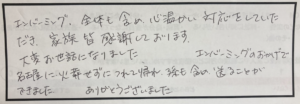 エンバーミング、金体も含め心温かい対応をしていた
だき、家族皆感謝しております。
大変お世話になりました　　エンバーミングのおかげで
名古屋に火葬せずにつれて帰れ、孫も含め送ることが
できました　　ありがとうございました